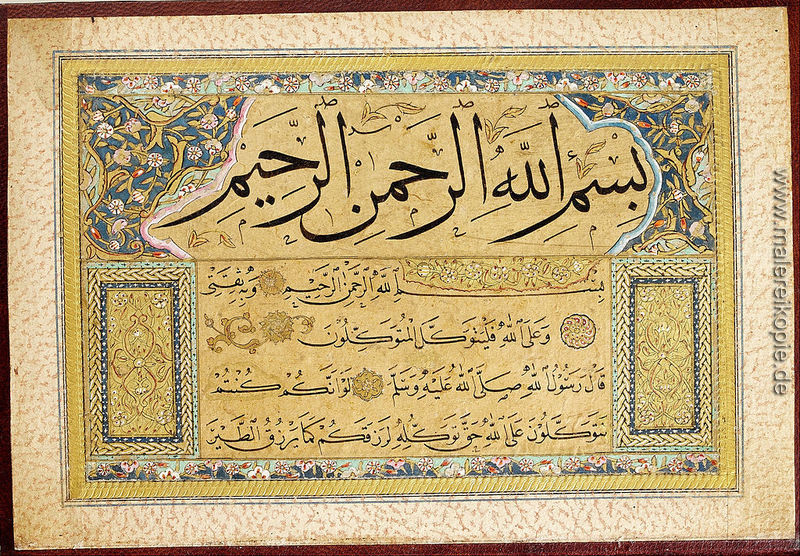 بِسْمِ اللَّهِ الرَّحْمٰنِ الرَّحِيمِ
بِسْمِ اللَّهِ الرَّحْمٰنِ الرَّحِيمِ وَبِهِ ثِقَتِي
وَعَلَى اللَّهِ فَلْيَتَوَكَّلِ الْمُتَوَكِّلُونَ
قَالَ رَسُولُ اللَّهِ صَلَّى اللَّهُ عَلَيْهِ وَسَلَّمَ لَوْ أَنَّكُمْ كُنْتُمْ
تَتَوَكَّلُونَ عَلَى اللَّهِ حَقَّ تَوَكُّلِهِ لَرَزَقَكُمْ كَمَا يَرْزُقُ الطَّيْرَ
www.malereikopie.de